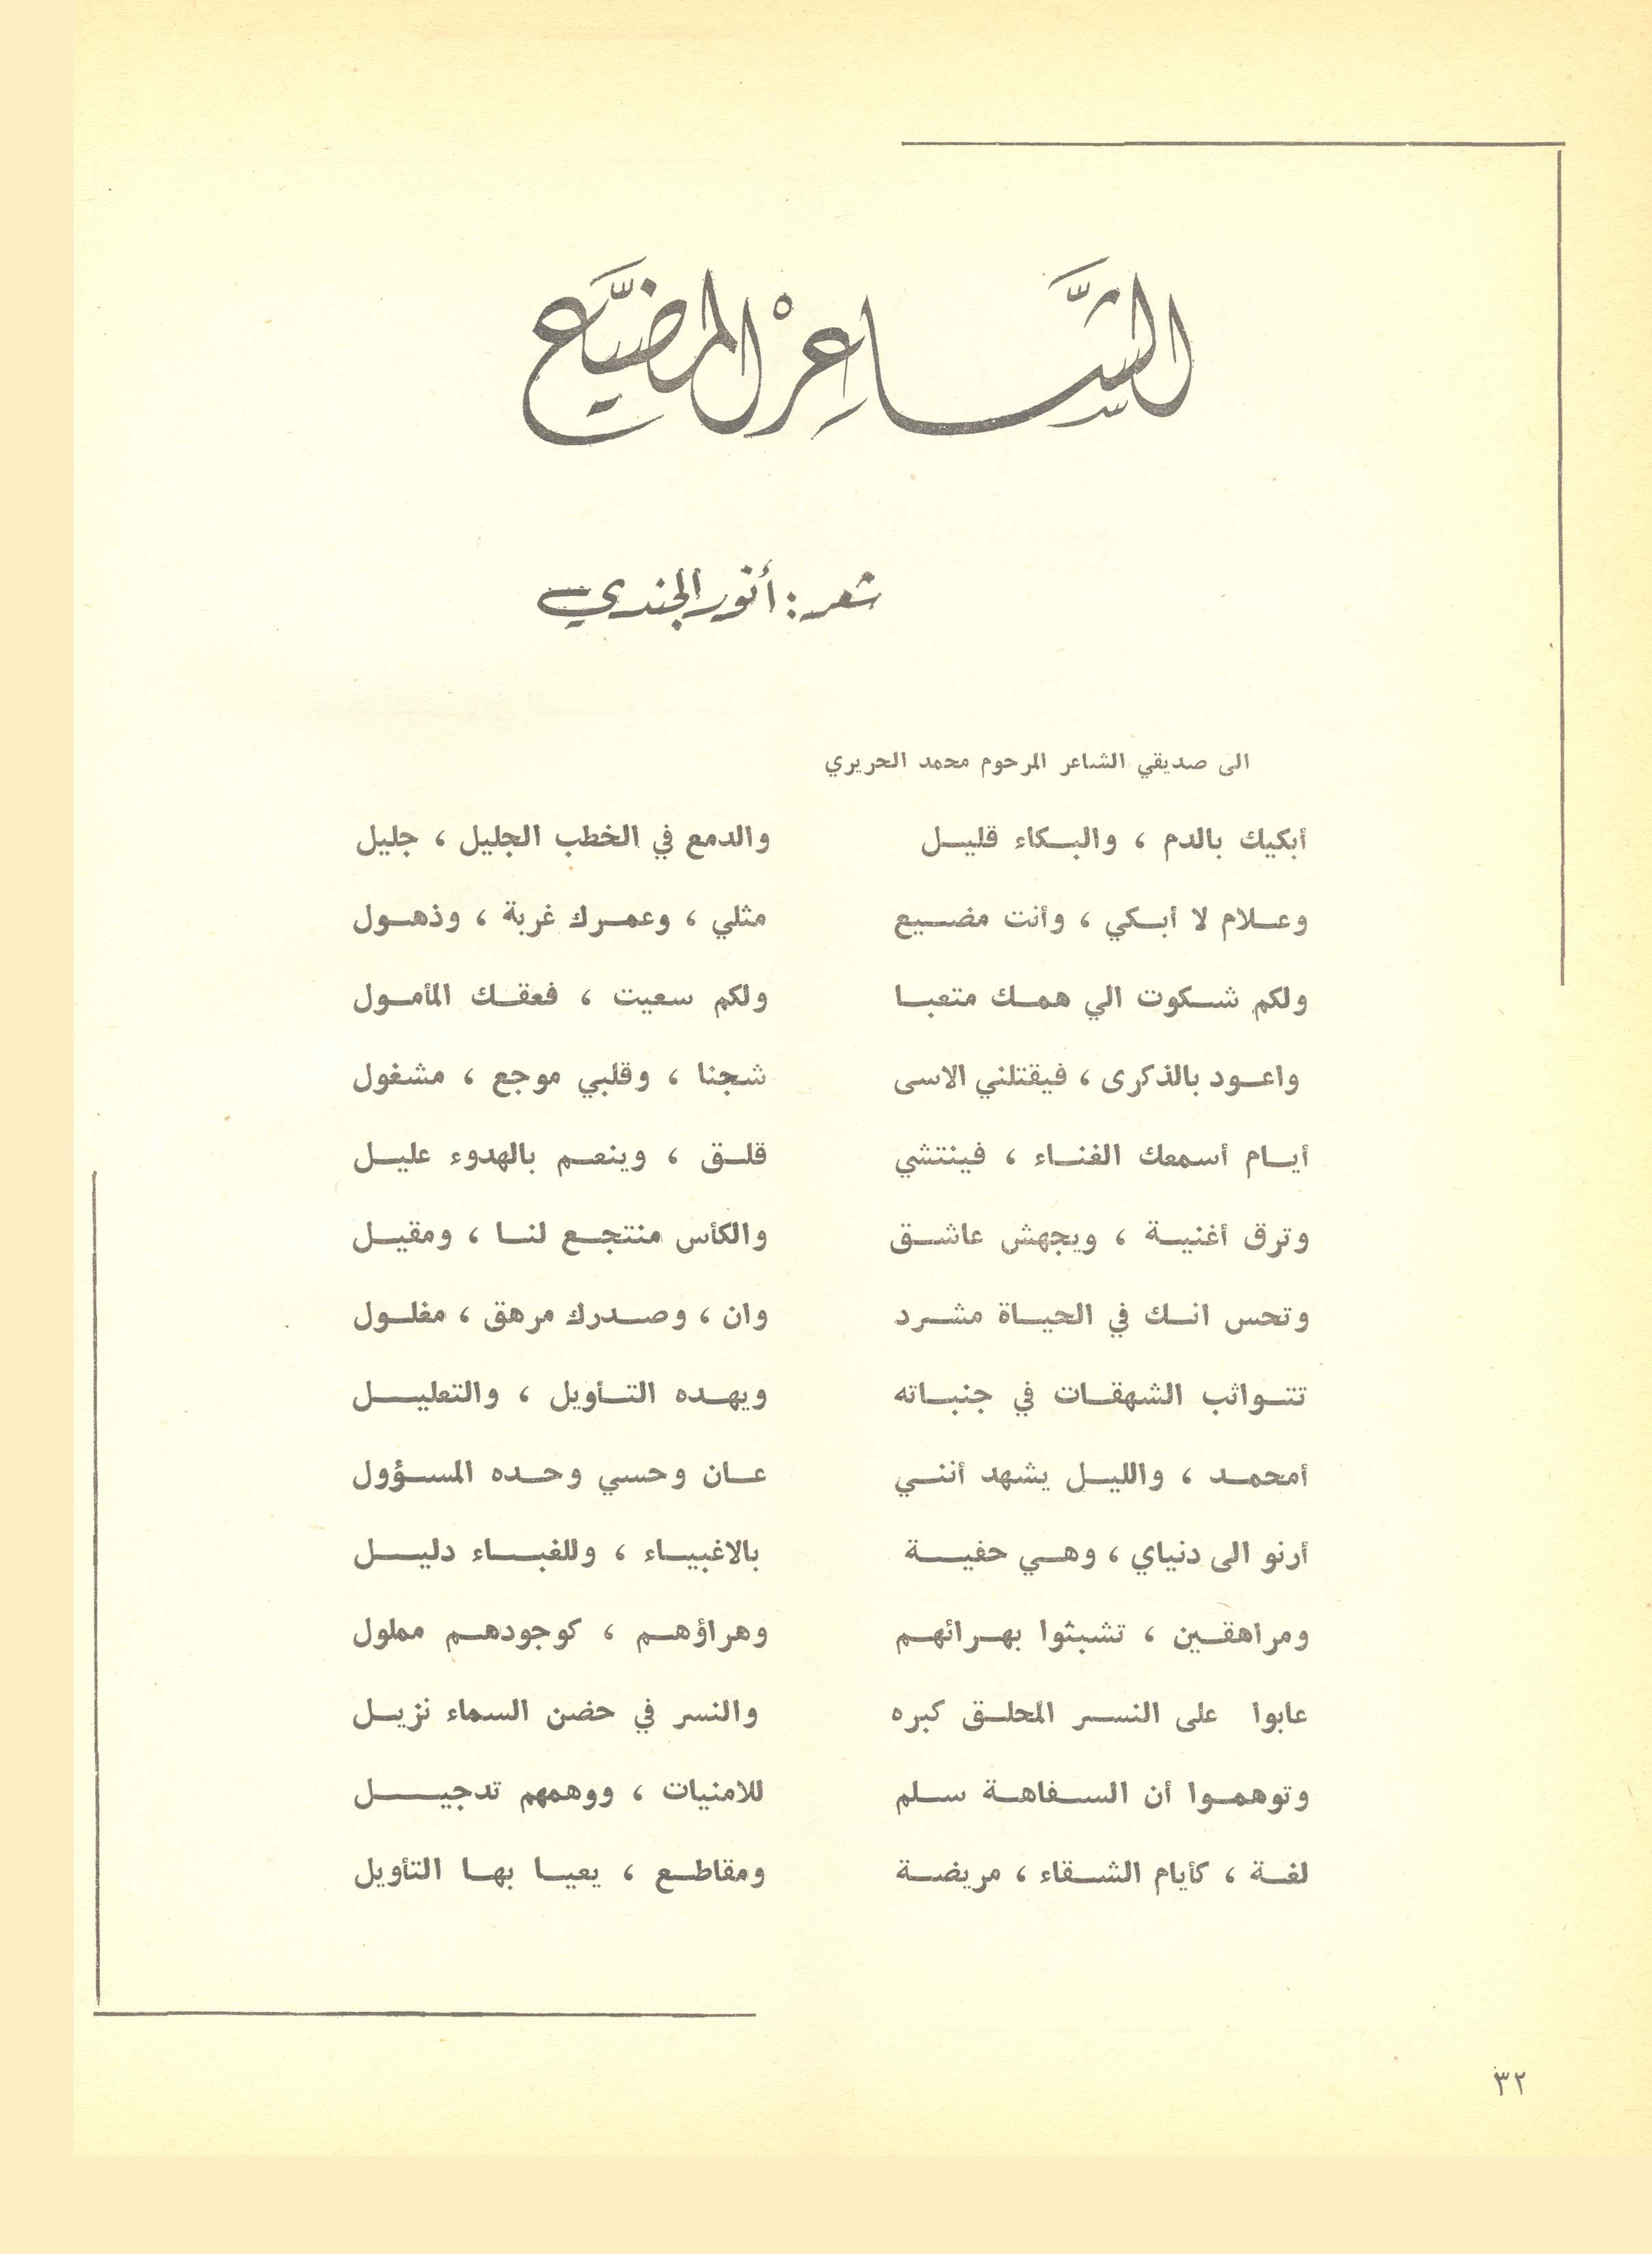 الشَّاعِرْ المضيَّع
شعر : أنور الجندي
الى صديقي الشاعر المرحوم محمد الحريري
أبكيك بالدم ، والبكاء قليل والدمع في الخطب الجليل ، جليل
وعلام لا أبكي ، وأنت مضيع مثلي ، وعمرك غربة ، وذهول
ولكم شكوت الي همك متعبا ولكم سعيت ، فعقك المأمول
واعود بالذكرى ، فيقتلني الاسى شجنا ، وقلبي موجع ، مشغول
أيام أسمعك الغناء ، فينتشي قلق ، وينعم بالهدوء عليل
وترق أغنية ، ويجهش عاشق والكأس منتجع لنا ، ومقيل
وتحس انك في الحياة مشرد وان ، وصدرك مرهق ، مغلول
تتواثب الشهقات في جنباته ويهده التأويل ، والتعليل
أمحمد ، والليل يشهد أنني عان وحسي وحده المسؤول
أرنو الى دنياي ، وهي حفية بالاغبياء ، وللغباء دليل
ومراهقين ، تشبثوا بهرائهم وهراؤهم ، كوجودهم مملول
عابوا على النسر المحلق كبره والنسر في حضن السماء نزيل
وتوهموا أن السفاهة سلم للامنيات ، ووهمهم تدجيل
لغة ، كأيام الشقاء ، مريضة ومقاطع ، يعيا بها التأويل
٣٢